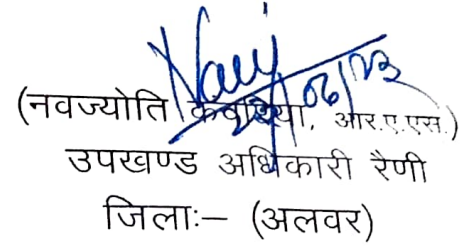 (नवज्योति कवरिया, आर.ए.एस.)
उपखण्ड अधिकारी रैणी
जिला:– (अलवर)